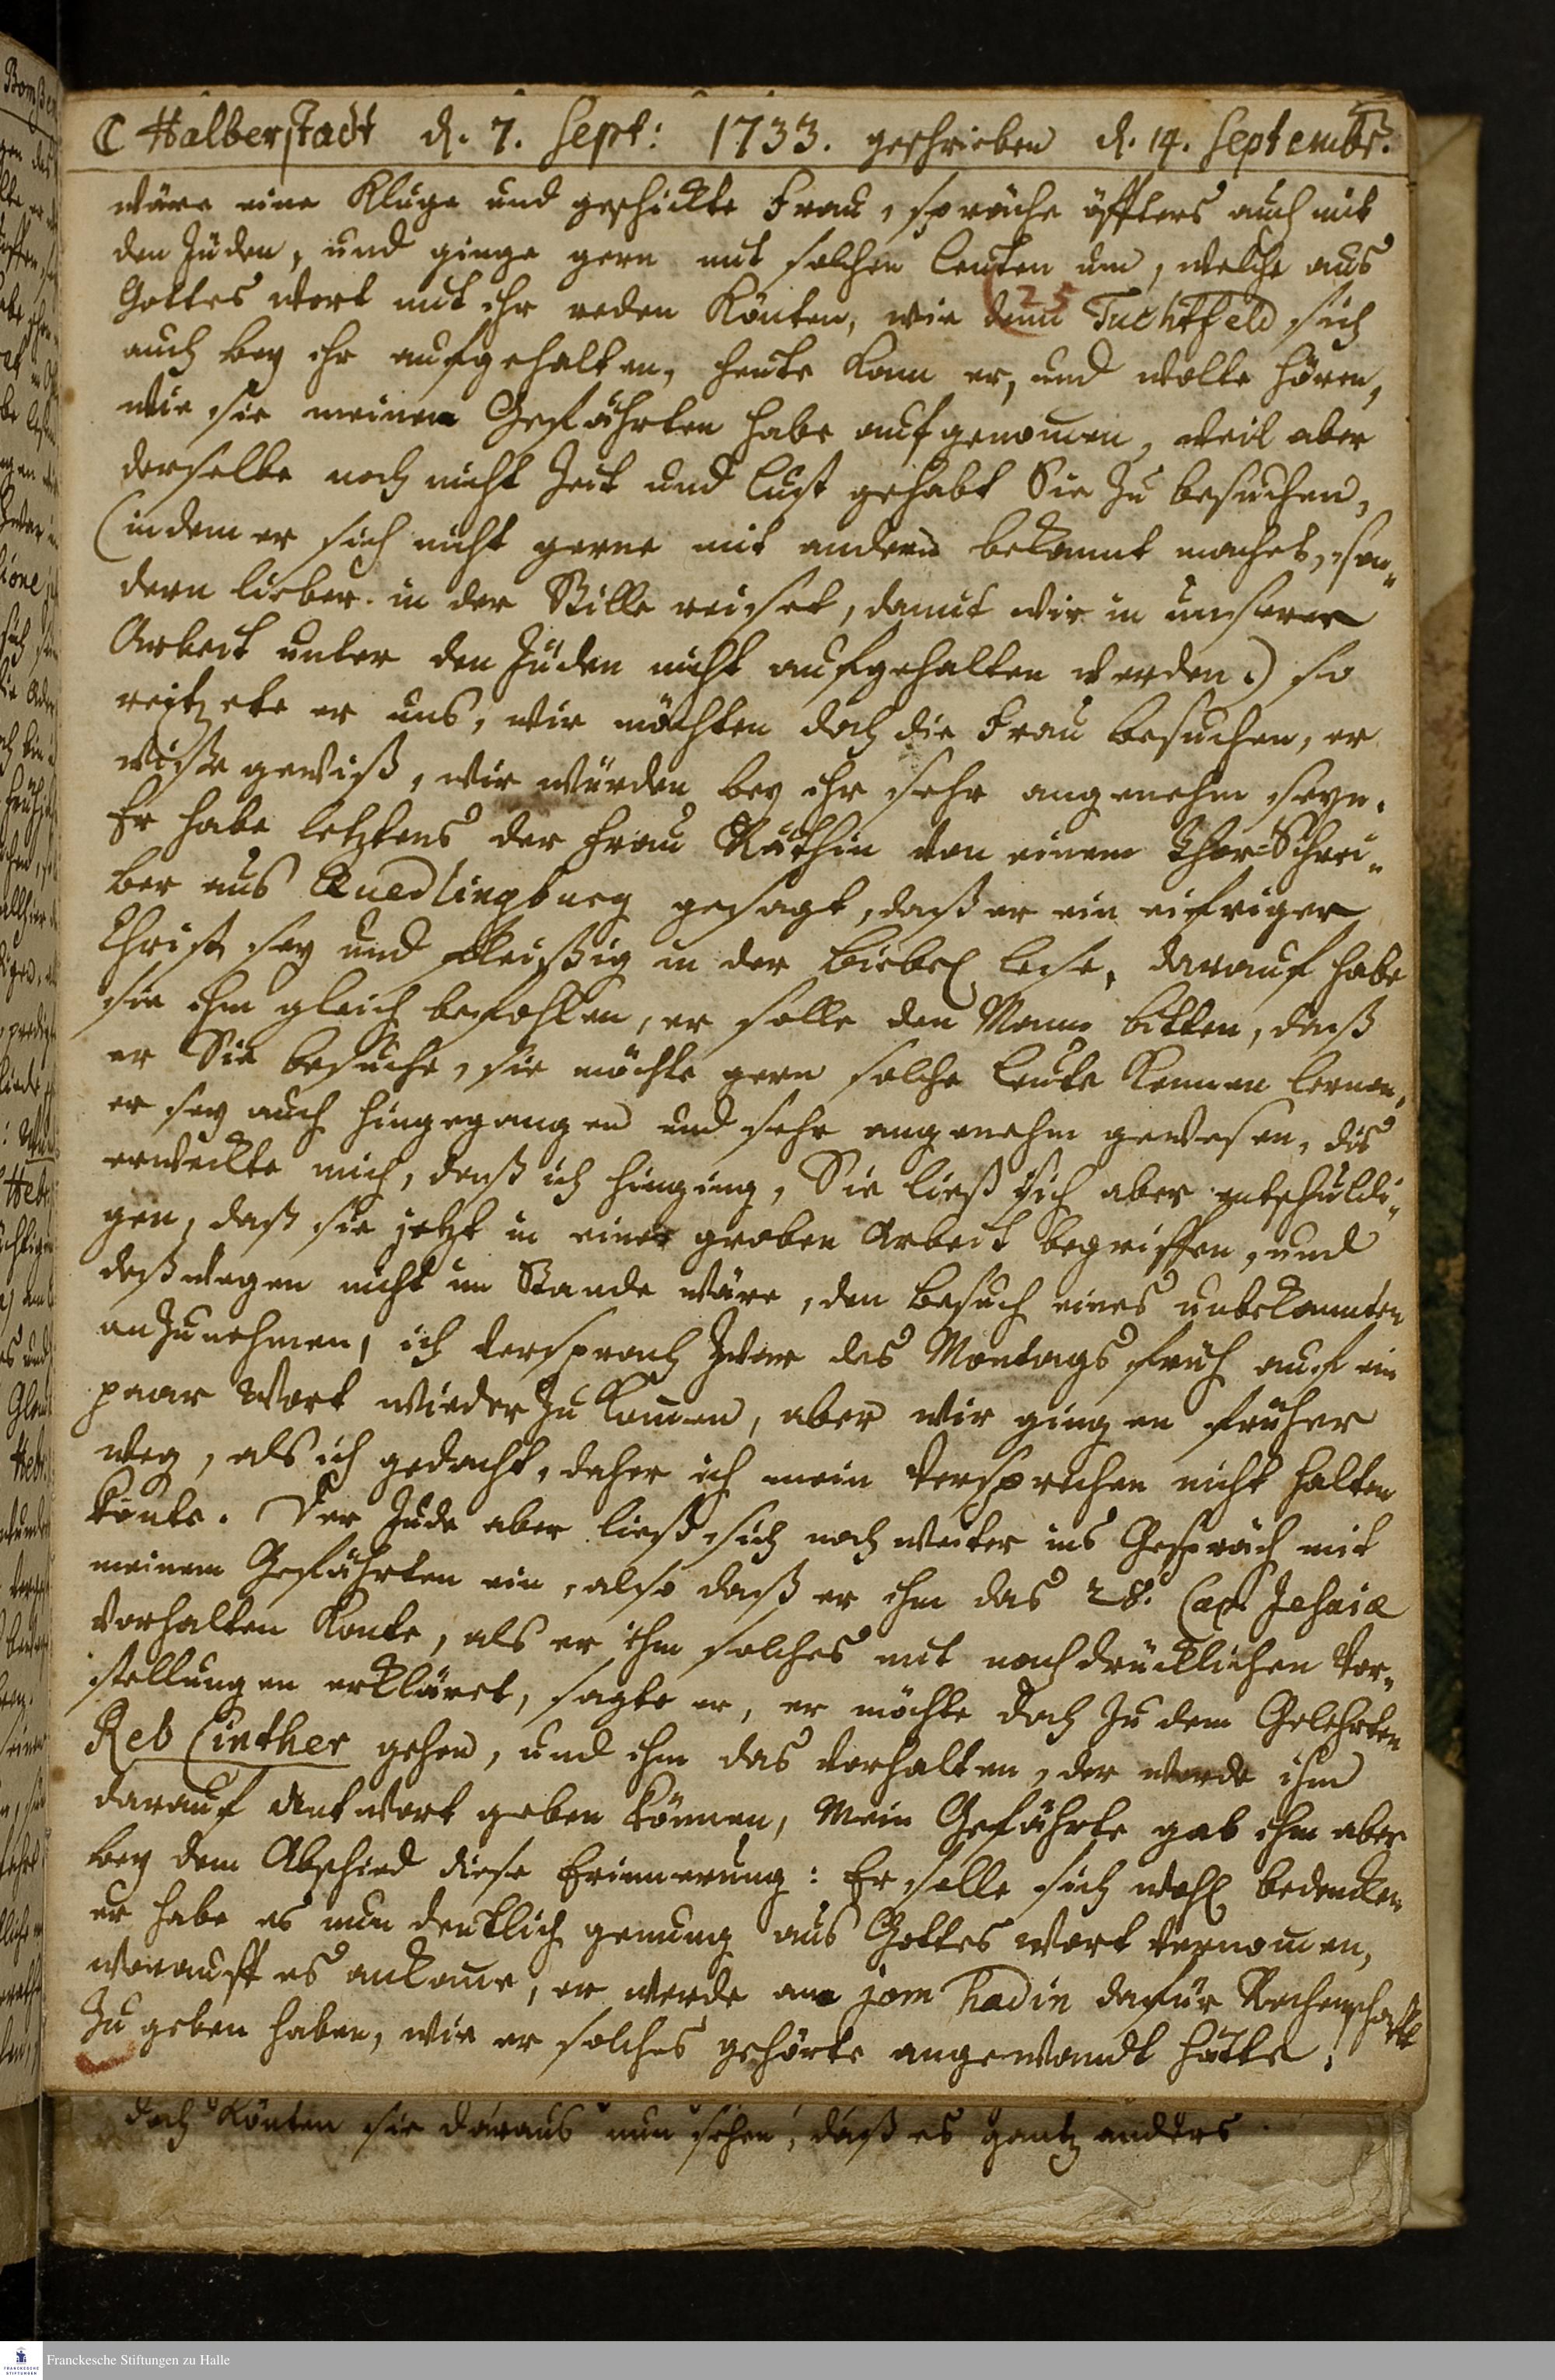 ☾ Halberstadt d. 7. Sept: 1733. geschrieben d. 14. Septembr.
wäre eine Kluge und geschickte Frau, spräche öffters auch mit
den Juden, und ginge gern mit solchen Leuten um, welche aus
25
Gottes Wort mit ihr reden Könten, wie denn Tuchtfeld sich
auch bey ihr aufgehalten, heute kam er, und wolte hören,
wie sie meinen Gefährten habe aufgenom̄en, weil aber
derselbe noch nicht Zeit und Lust gehabt Sie zu besuchen,
(indem er sich nicht gerne mit andern bekannt machet, son„
dern lieber in der Stille reiset, damit wir in unserer
Arbeit unter den Juden nicht aufgehalten werden.) so
reitzete er uns, wir möchten doch die Frau besuchen, er
wiße gewiß, wir würden bey ihr sehr angenehm seyn.
Er habe letztens der Frau Räthin von einem Thor-Schrei„
ber aus Quedlingburg gesagt, daß er ein eifriger
Christ sey und fleißig in der Biebel lese, darauf habe
sie ihm gleich befohlen, er solle den Mann bitten, daß
er Sie besuche, sie möchte gern solche Leute Kennen lernen,
er sey auch hingegangen und sehr angenehm gewesen, dis
erweckte mich, daß ich hinging, Sie ließ sich aber entschuldi„
gen, daß sie jetzt in einer groben Arbeit begriffen, und
deßwegen nicht im Stande wäre, den Besuch eines unbekannten
anzunehmen, ich versprach zwar des Montags früh auf ein
paar Wort wieder zu kom̄en, aber wir gingen früher
weg, als ich gedacht, daher ich mein Versprechen nicht halten
konte. Der Jude aber ließ sich noch weiter ins Gespräch mit
meinem Gefährten ein, also daß er ihm das 28. Cap. Jesaiæ
vorhalten Konte, als er ihm solches mit nachdrücklichen Vor„
stellungen erkläret, sagte er, er möchte doch zu dem Gelehrten
Reb Cinther gehen, und ihm das vorhalten, der werde ihm
darauf Antwort geben können, Mein Gefährte gab ihm aber
bey dem Abschied diese Erinnerung: Er solle sich wohl bedencken
er habe es nun deutlich genung aus Gottes Wort vernom̄en,
worauff es ankom̄e, er werde am jom hadin dafür Rechenschafft
zu geben haben, wie er solches gehörte angewandt hätte.
doch Könten sie daraus nun sehen, daß es gantz anders
Franckesche Stiftungen zu Halle